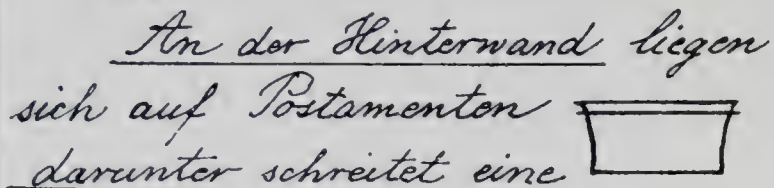 An der Hinterwand liegen
sich auf Postamenten
darunter schreitet eine